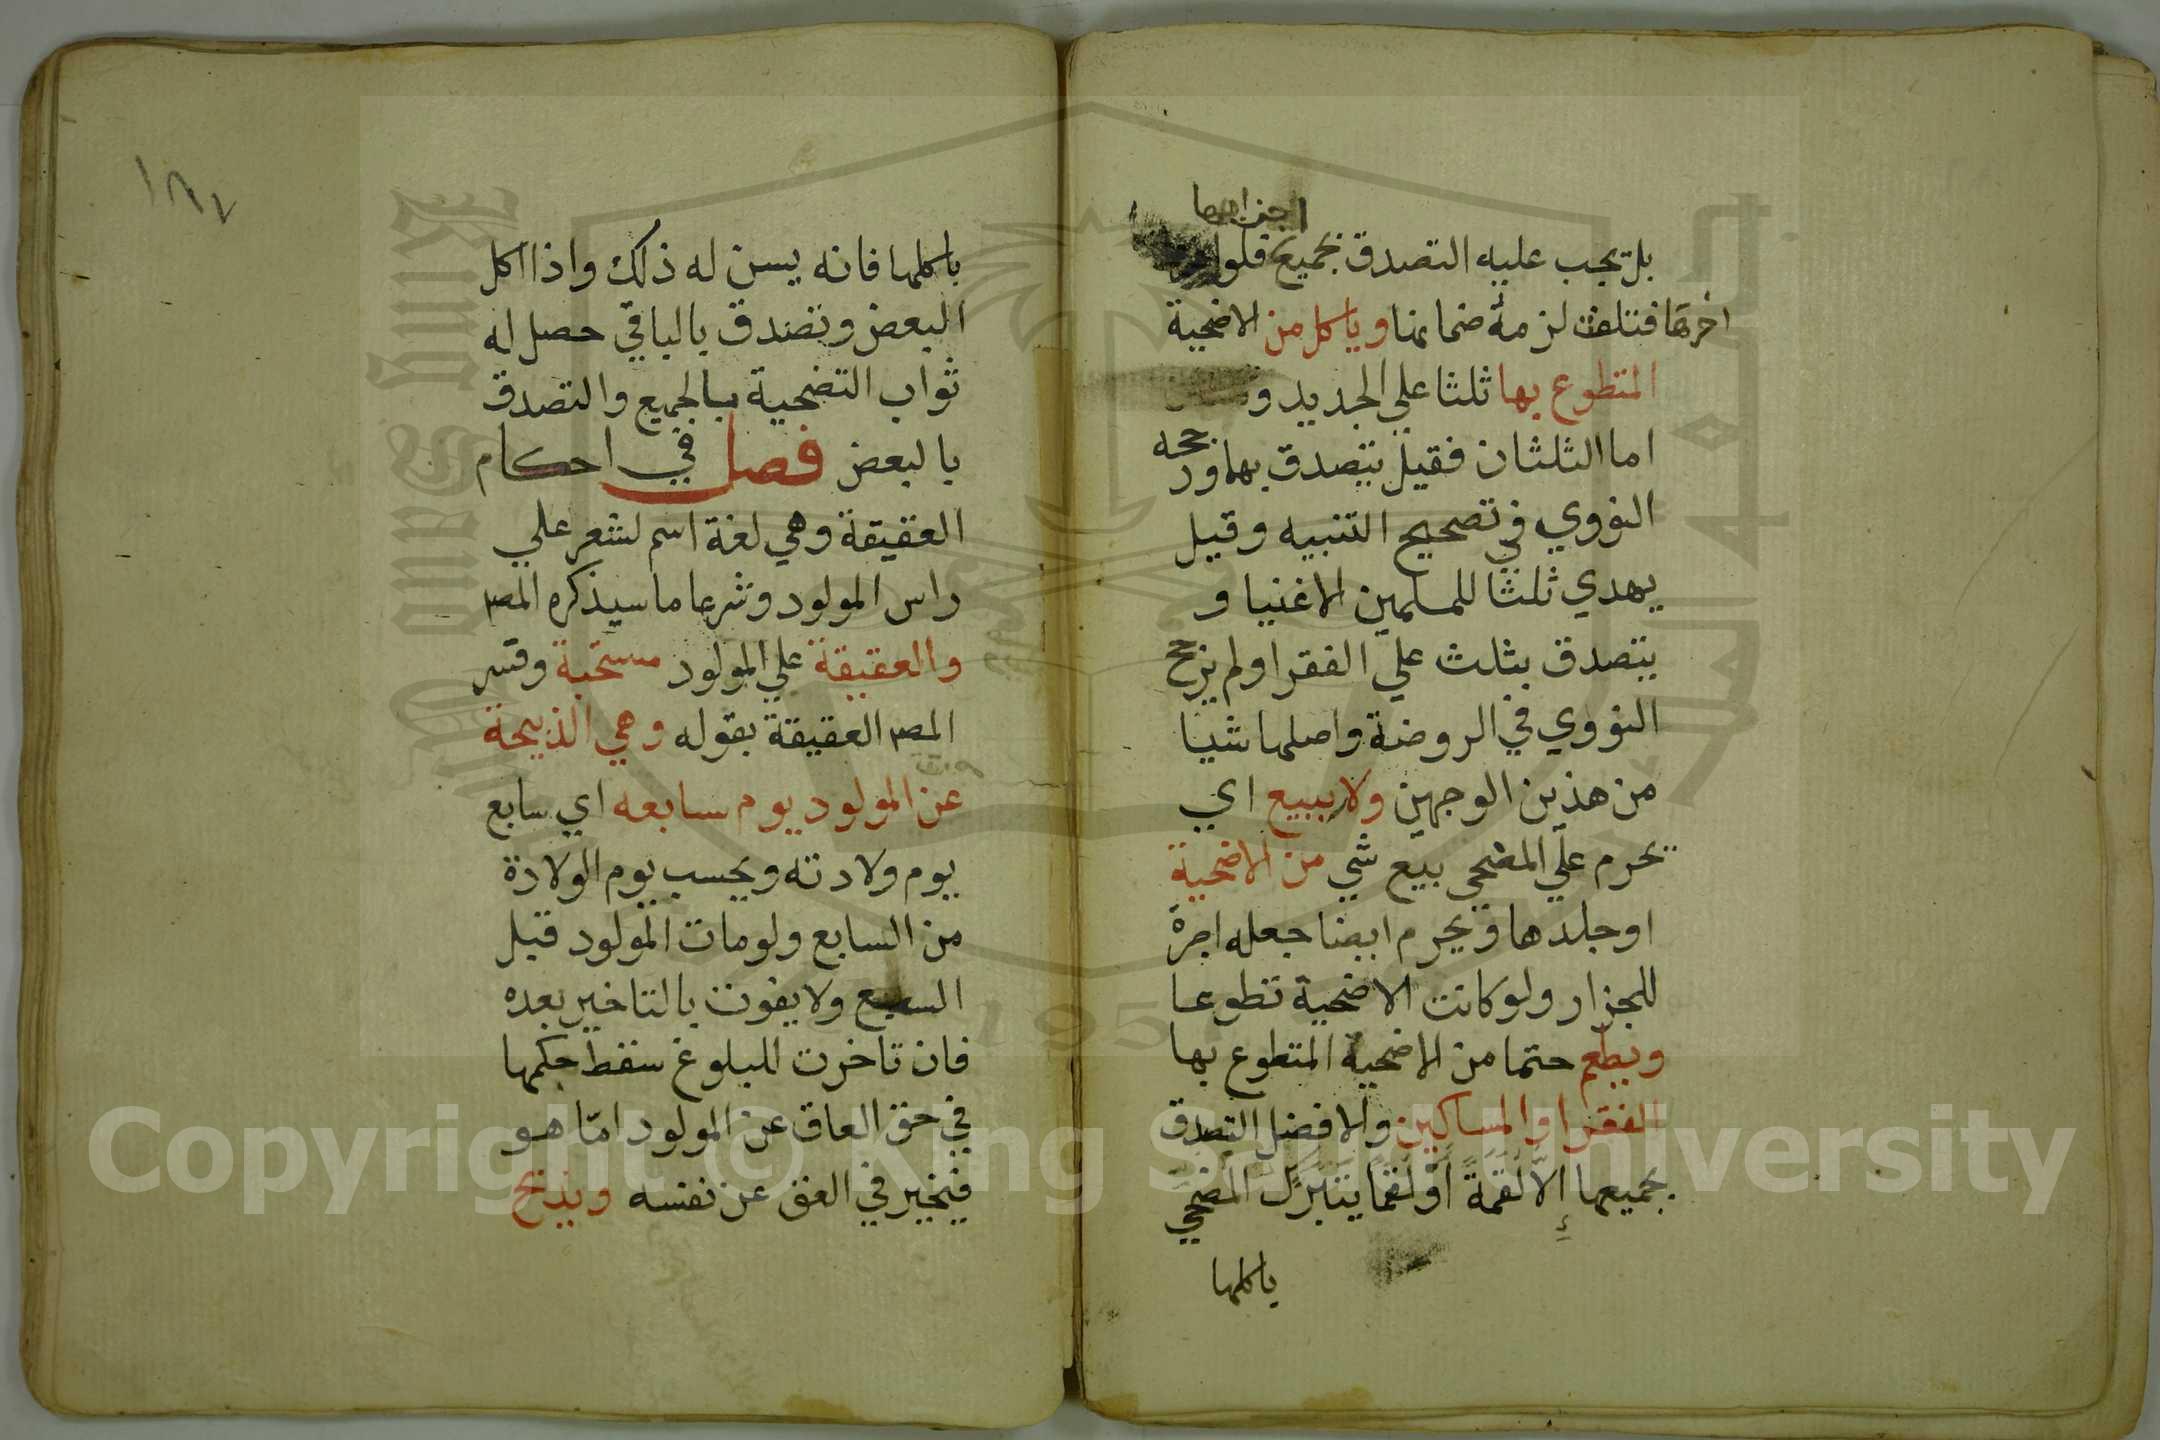 بل يجب عليه التصدق بجميع فلو
اخرها فتلفت لزمه ضمانها وياكل من الاضحية
المتطوع بها ثلثا علي الجديد و
اما الثلثان فقيل يتصدق بهما ورجحه
النووي في تصحيح التنبيه وقيل
يهدي ثلثا للمسلمين الاغنيا و
يتصدق بثلث علي الفقرا ولم يرجح
النووي في الروضة واصلها شيا
من هذين الوجهين ولا يبيع اي
يحرم علي المضحي بيع شي من الاضحية
او جلدها ويحرم ايضا جعله اجرة
للجزار ولو كانت الاضحية تطوعا
ويطعم حتما من الاضحية المتطوع بها
الفقرا والمساكين والافضل التصدق
بجميعها إلا لقمة أو لقما يتبرك المضحي
ياكلها
١٨٧
باكلها فانه يسن له ذلك واذا اكل
البعض وتصدق بالباقي حصل له
ثواب التضحية بالجميع والتصدق
بالبعض فصل في احكام
العقيقة وهي لغة اسم لشعر علي
راس المولود وشرعا ما سيذكره المصـ
والعقيقة علي المولود مستحبة وفسر
المصـ العقيقة بقوله وهي الذبيحة
عن المولود يوم سابعه اي سابع
يوم ولادته ويحسب يوم الولادة
من السابع ولو مات المولود قبل
السبع ولا يفوت بالتاخير بعده
فان تاخرت للبلوغ سقط حكمها
في حق العاق عن المولود امّا هو
فيخير في العق عن نفسه ويذبح
Copyright © King Saud University
1957